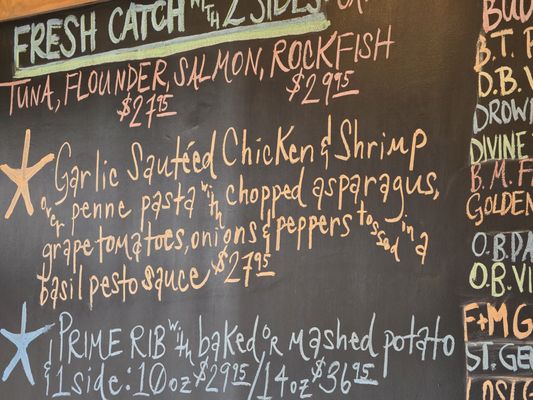 FRESH CATCH with 2 SIDES
TUNA, FLOUNDER, SALMON, ROCKFISH
$27.95 $29.95
Garlic Sautéed Chicken & Shrimp
over penne pasta with chopped asparagus,
grape tomatoes, onions & peppers tossed in a
basil pesto sauce $27.95
PRIME RIB with baked or mashed potato
& 1 side: 10oz $29.95 / 14oz $36.95
B.T.
D.B. V
DROW
DIVINE
B.M. F
GOLDEN
O.B. DA
O.B. VI
F+M G
ST. GE